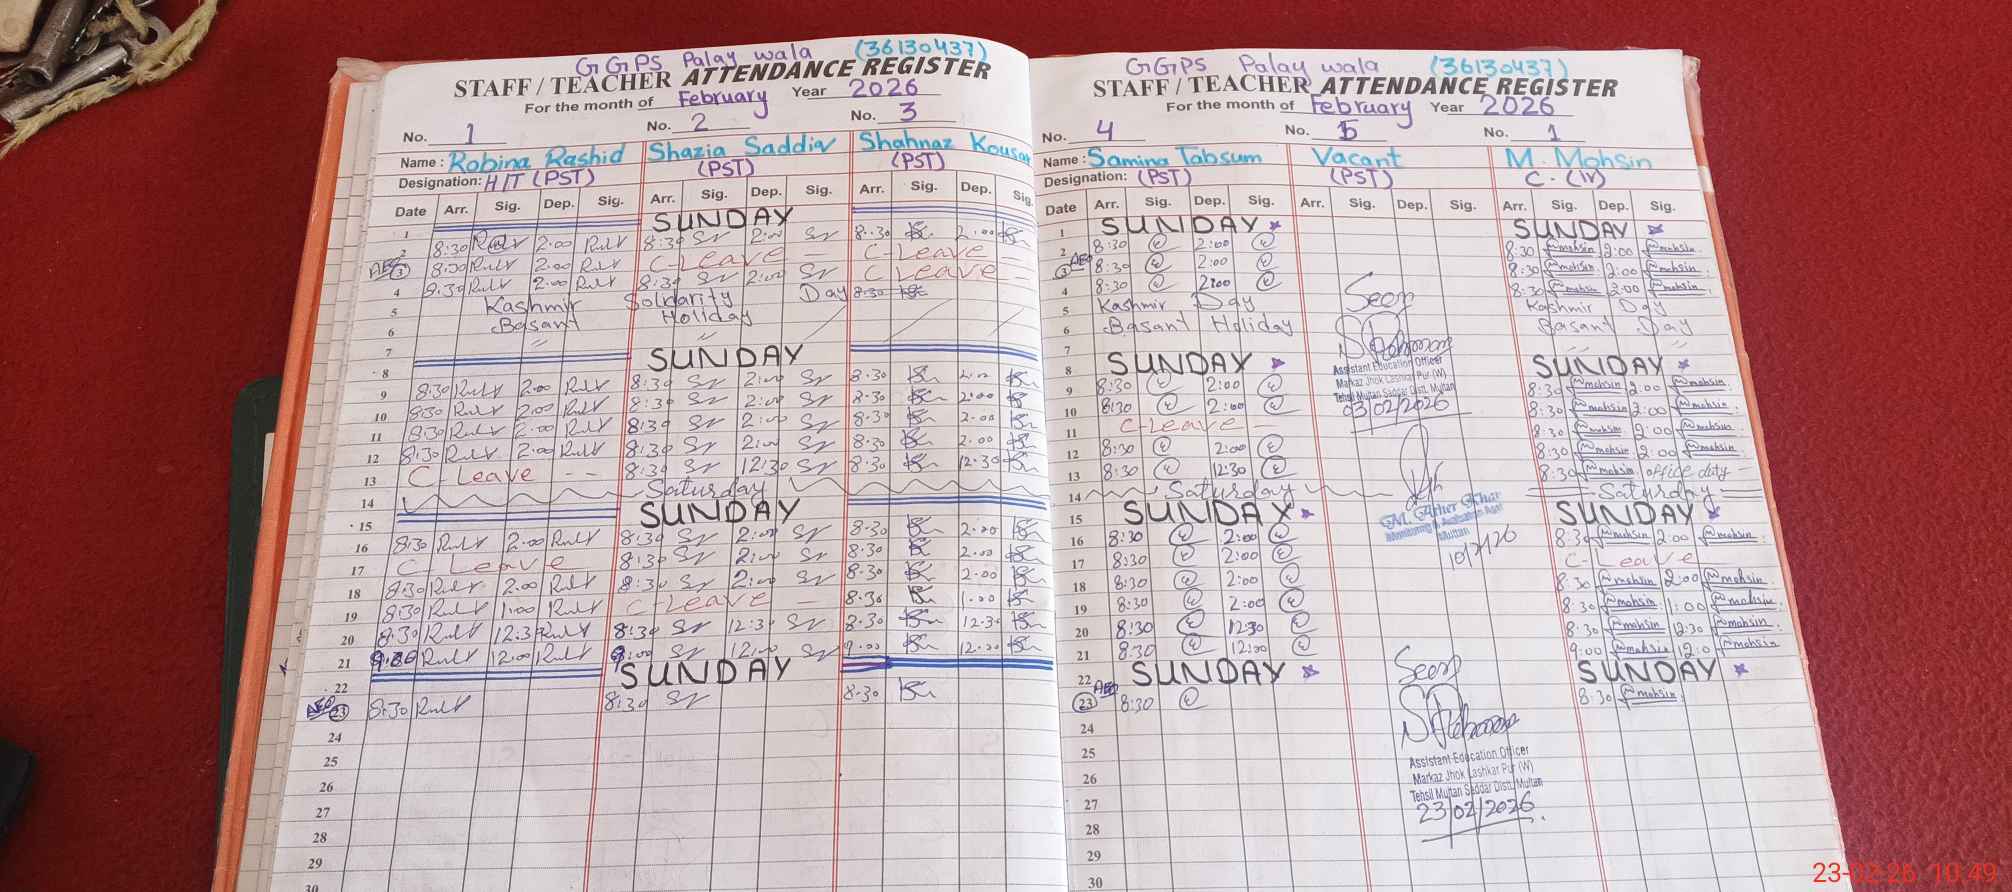 GGPS Palay wala (36130437)
STAFF / TEACHER ATTENDANCE REGISTER
For the month of February Year 2026
No. 1 No. 2 No. 3
Name : Robina Rashid Shazia Saddiq Shahnaz Kousar
Designation: H/T (PST) (PST) (PST)
Date Arr. Sig. Dep. Sig. Arr. Sig. Dep. Sig. Arr. Sig. Dep. Sig.
1 SUNDAY
2 8:30 2:00 8:30 2:00 8:30 2:00
AEO 3 8:30 2:00 C-Leave C-Leave
4 8:30 2:00 8:30 2:00 C-Leave
5 Kashmir Solidarity Day 8:30
6 Basant Holiday
7 〃 〃
8 SUNDAY
9 8:30 2:00 8:30 2:00 8:30 2:00
10 8:30 2:00 8:30 2:00 8:30 2:00
11 8:30 2:00 8:30 2:00 8:30 2:00
12 8:30 2:00 8:30 2:00 8:30 2:00
13 C-Leave 8:30 12:30 8:30 12:30
14 Saturday
15 SUNDAY
16 8:30 2:00 8:30 2:00 8:30 2:00
17 C-Leave 8:30 2:00 8:30 2:00
18 8:30 2:00 8:30 2:00 8:30 2:00
19 8:30 1:00 C-Leave 8:30 1:00
20 8:30 12:30 8:30 12:30 8:30 12:30
21 12:00 9:00 12:00 9:00 12:00
22 SUNDAY
AEO 23 8:30 8:30 8:30
24
25
26
27
28
29
30
GGPS Palay wala (36130437)
STAFF / TEACHER ATTENDANCE REGISTER
For the month of February Year 2026
No. 4 No. 5 No. 1
Name : Samina Tabsum Vacant M. Mohsin
Designation: (PST) (PST) C. (IV)
Date Arr. Sig. Dep. Sig. Arr. Sig. Dep. Sig. Arr. Sig. Dep. Sig.
1 SUNDAY SUNDAY
2 8:30 2:00 8:30 mohsin 2:00 mohsin
AEO 3 8:30 2:00 8:30 mohsin 2:00 mohsin
4 8:30 2:00 8:30 mohsin 2:00 mohsin
5 Kashmir Day Kashmir Day
6 Basant Holiday Basant Day
7 〃 〃
8 SUNDAY SUNDAY
9 8:30 2:00 8:30 mohsin 2:00 mohsin
10 8:30 2:00 8:30 mohsin 2:00 mohsin
11 C-Leave 8:30 mohsin 2:00 mohsin
12 8:30 2:00 8:30 mohsin 2:00 mohsin
13 8:30 12:30 8:30 mohsin office duty
14 Saturday Saturday
15 SUNDAY SUNDAY
16 8:30 2:00 8:30 mohsin 2:00 mohsin
17 8:30 2:00 C-Leave
18 8:30 2:00 8:30 mohsin 2:00 mohsin
19 8:30 2:00 8:30 mohsin 1:00 mohsin
20 8:30 12:30 8:30 mohsin 12:30 mohsin
21 8:30 12:00 9:00 mohsin 12:0 mohsin
22 SUNDAY SUNDAY
AEO 23 8:30 8:30 mohsin
24
25
26
27
28
29
30
Seen
Assistant Education Officer
Markaz Jhok Lashkar Pur (W)
Tehsil Multan Saddar Distt. Multan
03/02/2026
M. Ather Athar
Multan
10/2/26
Seen
Assistant Education Officer
Markaz Jhok Lashkar Pur (W)
Tehsil Multan Saddar Distt. Multan
23/02/2026
23-02-26 10:49